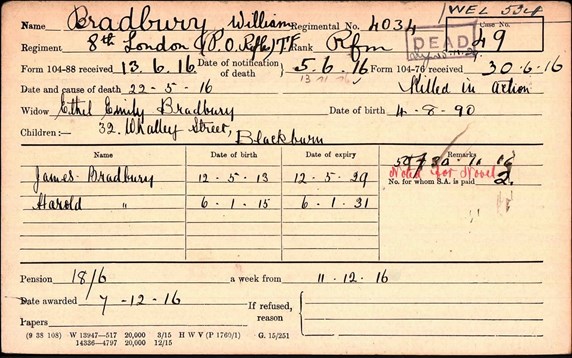 WEL 5324
Name Bradbury William Regimental No. 4034 Case No. 49
Regiment 8th London (P.O. Rifles) TF Rank Rfm DEAD
Form 104-88 received 13.6.16 Date of notification of death 5.6.16 Form 104-76 received 30.6.16
Date and cause of death 22-5-16 Killed in action
Widow Ethel Emily Bradbury Date of birth 4-8-90
Children:— 32. Whalley Street, Blackburn
Name Date of birth Date of expiry Remarks
James Bradbury 12-5-13 12-5-29 No. for whom S.A. is paid 2.
Harold " 6-1-15 6-1-31
Pension 18/6 a week from 11-12-16
Date awarded 7-12-16 If refused, reason
Papers
(9 38 108) W 13947—517 20,000 3/15 H W V (P 1760/1) G. 15/251
14336—4797 20,000 12/15